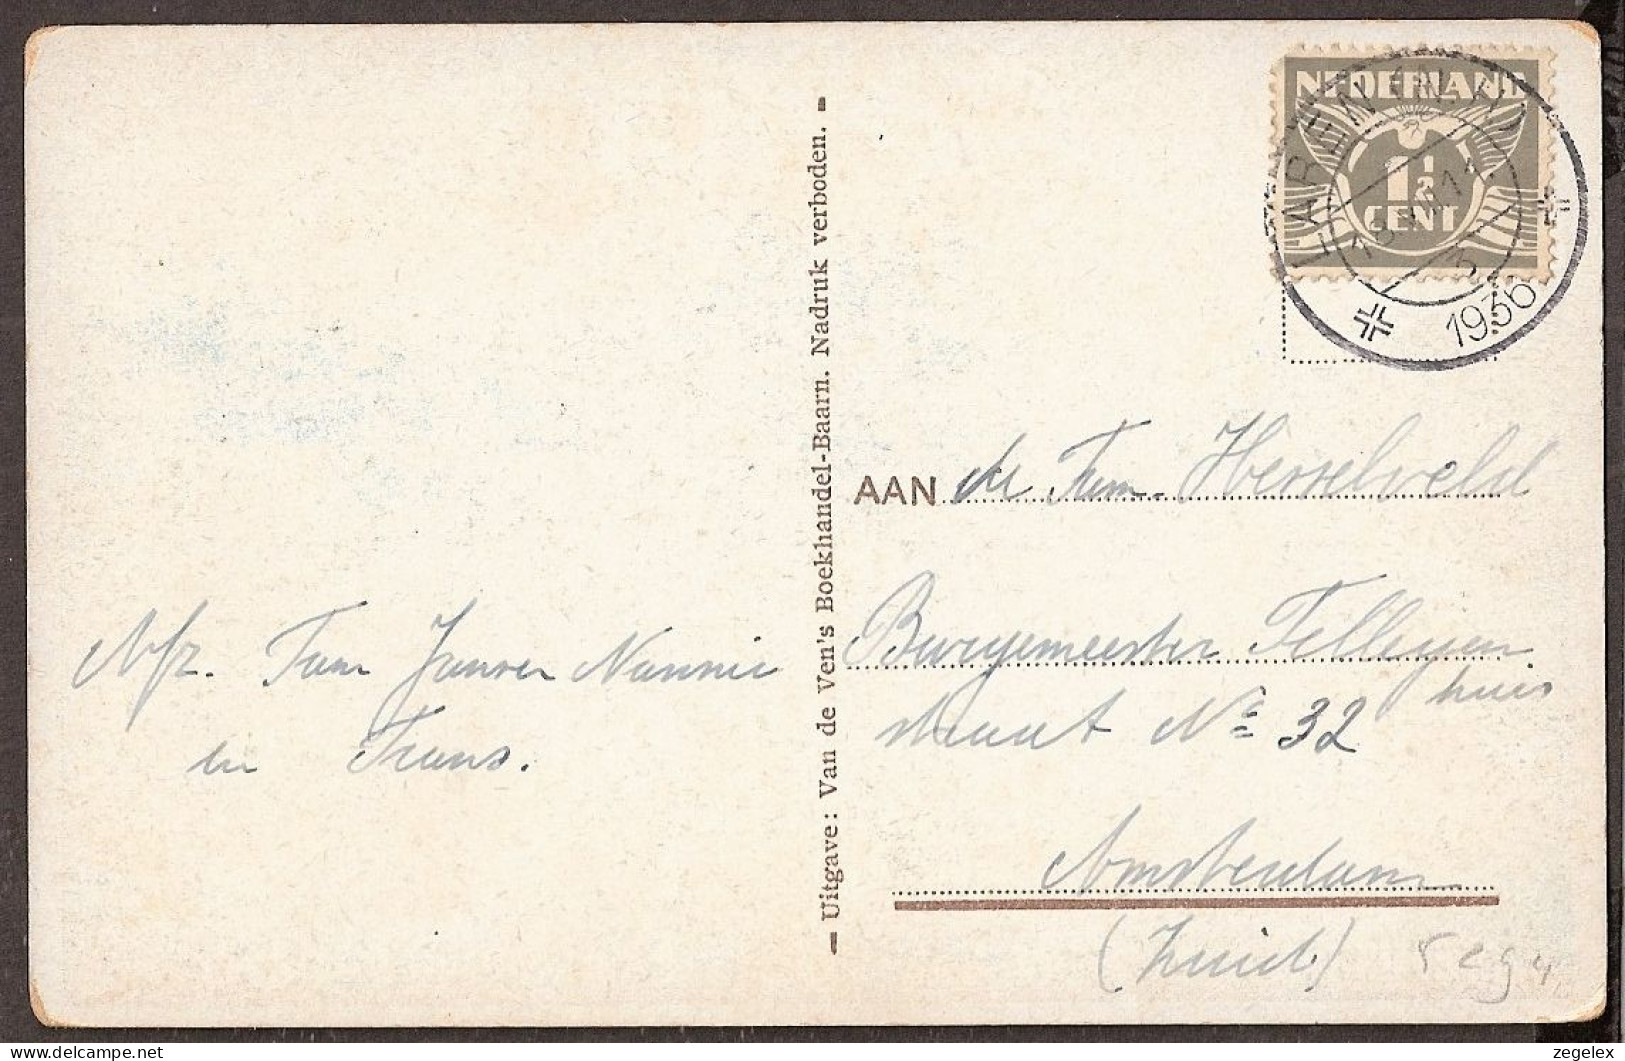 NEDERLAND
1½
CENT
LAREN (N.H.)
1936
Uitgave: Van de Ven's Boekhandel-Baarn. Nadruk verboden.
AAN de Fam. Hesselveld
Burgemeester Tellegen
huis
straat Nº 32
Amsterdam
(Zuid)
Afz. Fam Jansen Nannie
en Frans.
zegelex